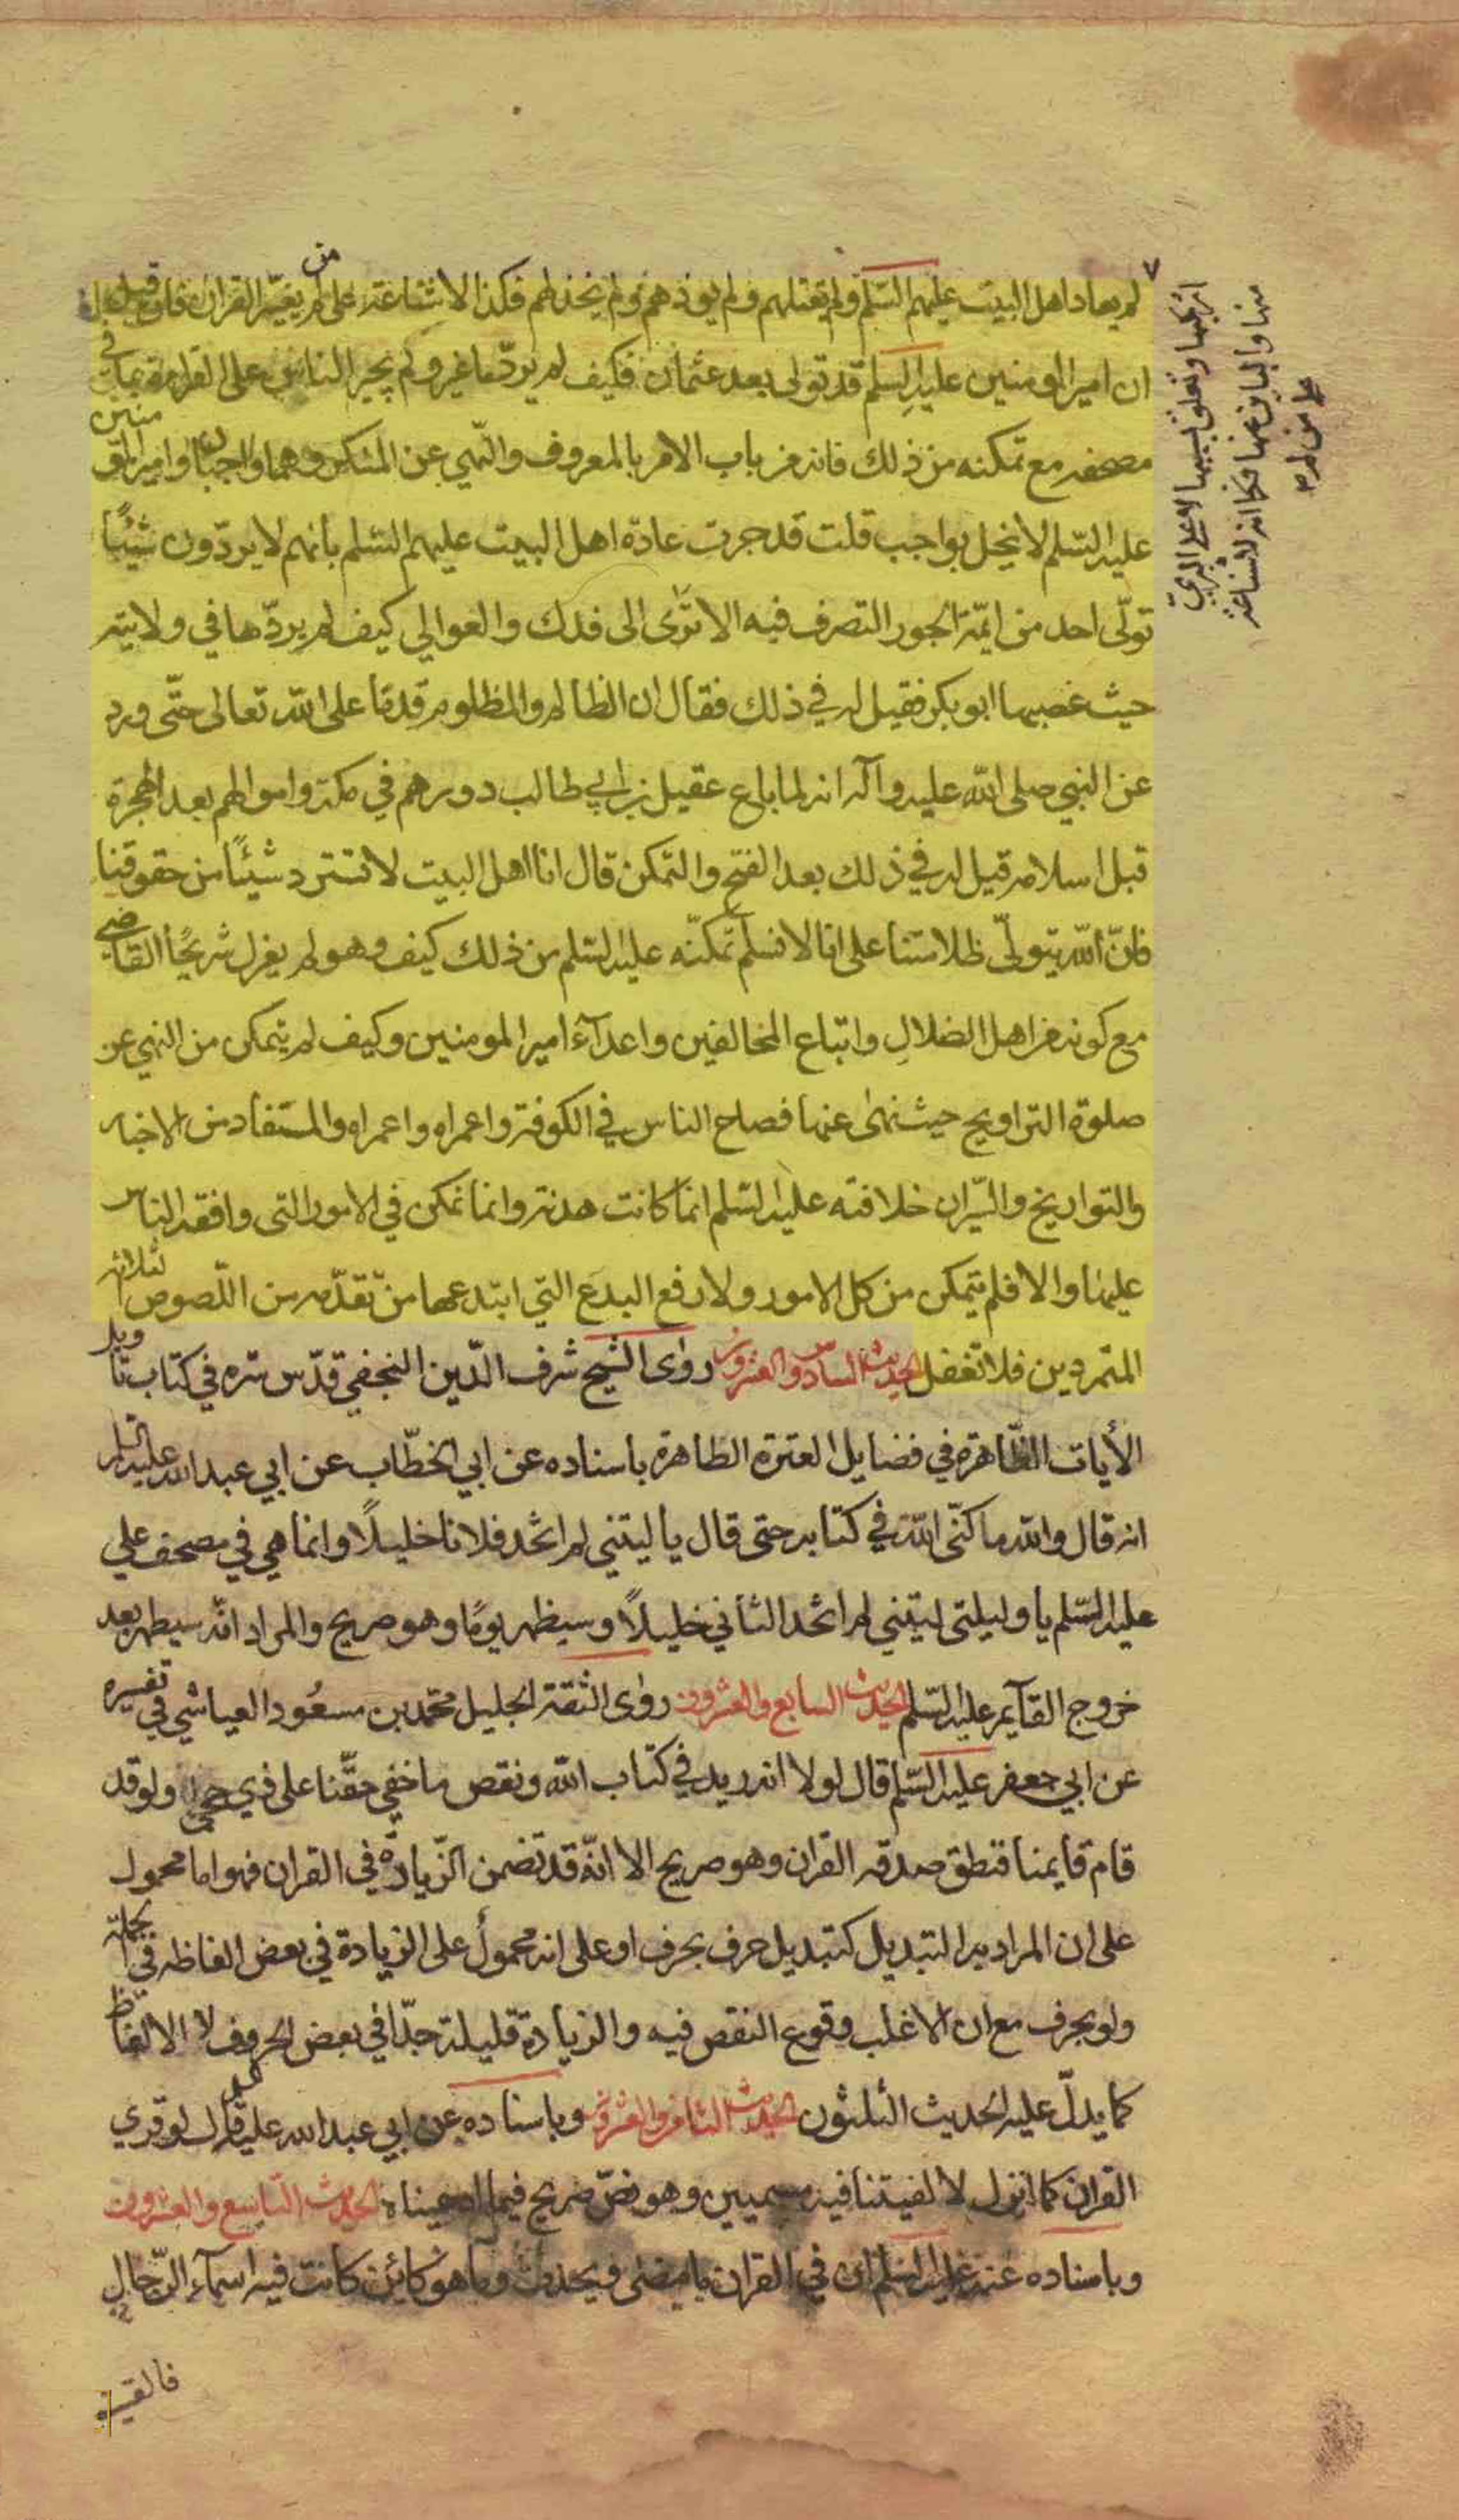 لم يعاد اهل البيت عليهم السلم ولم يقتلهم ولم يوذهم ولم يخذلهم فكذا لا شناعة على من لم يغيّر القران فان قيل
ان امير المومنين عليه السلم قد تولى بعد عثمان فكيف لم يردّ ما غير ولم يجبر الناس على القراءة بما في
مصحفه مع تمكنه من ذلك فانه من باب الامر بالمعروف والنّهي عن المنكر وهما واجبان وامير المؤمنين
عليه السّلم لا يخل بواجب قلت قد جرت عادة اهل البيت عليهم السّلم بانهم لا يردّون شيئًا
تولّى احد من ائمّة الجور التصرف فيه الا ترى الى فدك والعوالي كيف لم يردّها في ولايته
حيث غصبها ابو بكر فقيل له في ذلك فقال ان الظالم والمظلوم قدما على الله تعالى حتّى ورد
عن النبي صلى الله عليه وآله انه لما باع عقيل بن ابي طالب دورهم في مكة واموالهم بعد الهجرة
قبل اسلامه قيل له في ذلك بعد الفتح والتمكن قال انا اهل البيت لا نسترد شيئًا من حقوقنا
فانّ الله يتولّى ظلامتنا على انا لا نسلم تمكنّه عليه السلم من ذلك كيف وهو لم يغزل شريحًا القاضي
مع كونه من اهل الضلالِ واتباع المخالفين واعدآء امير المومنين وكيف لم يتمكن من النهي عن
صلوة التراويح حيث نهى عنها فصاح الناس في الكوفة واعمراه واعمراه والمستفاد من الاخبار
والتواريخ والسّير ان خلافته عليه السّلم انما كانت هدنة وانما تمكن في الامور التى وافقه الناس
عليها والا فلم يتمكن من كل الامور ولا رفع البدع التي ابتدعها من تقدّمه من اللّصوص الثلاثة
المتمردين فلا تغفل الحديث السادس والعشرون روى الشيخ شرف الدّين النجفي قدّس سره في كتاب تاويل
الأيات الظّاهرة في فضايل العترة الطاهرة باسناده عن ابي الخطّاب عن ابي عبد الله عليه السلم
انه قال والله ما كنّى الله في كتابه حتى قال يا ليتني لم اتخذ فلانا خليلًا وانما هي في مصحف علي
عليه السّلم يا ويلتى ليتني لم اتخذ الثاني خليلًا وسيظهر يومًا وهو صريح والمراد انّه سيظهر بعد
خروج القآيم عليه السّلم الحديث السابع والعشرون روى الثقة الجليل محمّد بن مسعُود العياشي في تفسيره
عن ابي جعفر عليه السّلم قال لولا انه زيد في كتاب الله ونقص ما خفي حقّنا على ذي حجى ولو قد
قام قايمنا فنطق صدقه القران وهو صريح الا انّه قد تضمن الزّيادة في القران فهو اما محمول
على ان المراد به التبديل كتبديل حرف بحرف او على انه محمول على الزيادة في بعض الفاظه في الجملة
ولو بحرف مع ان الاغلب وقوع النقص فيه والزيادة قليلة جدًّا في بعض الحروف لا الالفاظ
كما يدلّ عليه الحديث الثلثون الحديث الثامن والعشرون وباسناده عن ابي عبد الله عليه السلم قال لو قري
القران كما انزل لا لفيتنا فيه مسميين وهو نصّ صريح فيما ادعيناه الحديث التاسع والعشرون
وباسناده عنه عليه السلم ان في القران ما مضى ويحدث وما هو كائن كانت فيه اسمآء الرّجال
فالقيت
انه يحبها وتعلق بسببها لا على البري
منها والمباين عنها فكما انه لا شناعة
على من لم